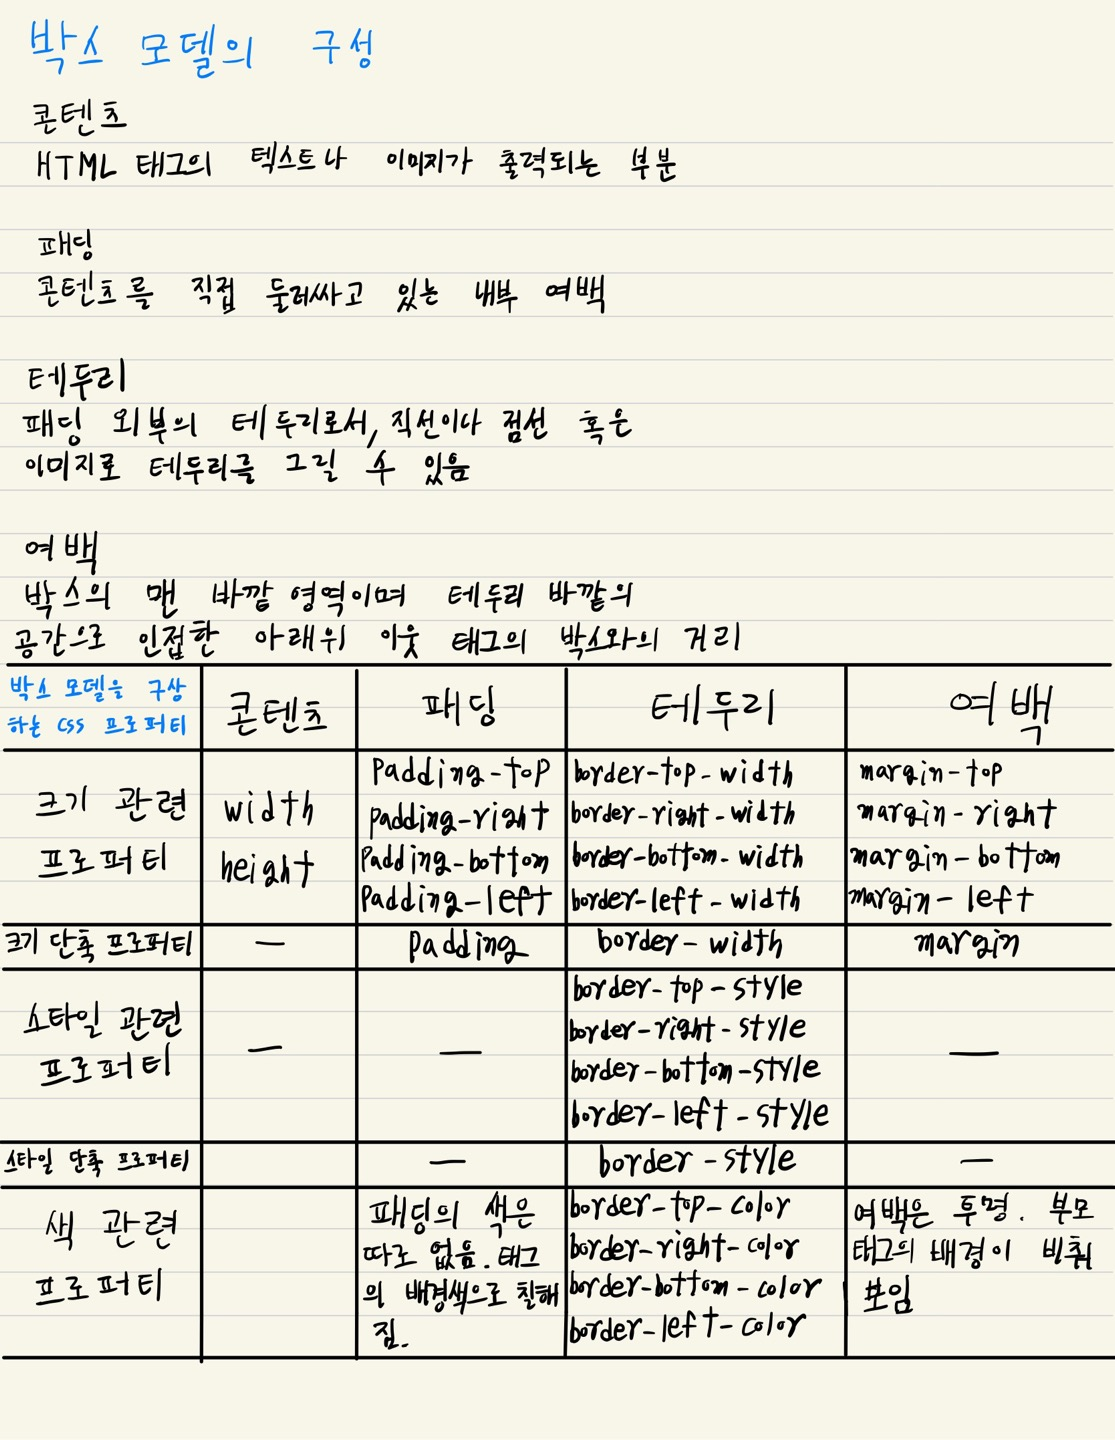 박스 모델의 구성
콘텐츠
HTML 태그의 텍스트나 이미지가 출력되는 부분
패딩
콘텐츠를 직접 둘러싸고 있는 내부 여백
테두리
패딩 외부의 테두리로서, 직선이나 점선 혹은
이미지로 테두리를 그릴 수 있음
여백
박스의 맨 바깥 영역이며 테두리 바깥의
공간으로 인접한 아래위 이웃 태그의 박스와의 거리
박스 모델을 구상
하는 CSS 프로퍼티
콘텐츠
패딩
테두리
여백
크기 관련
프로퍼티
width
height
padding-top
padding-right
padding-bottom
padding-left
border-top-width
border-right-width
border-bottom-width
border-left-width
margin-top
margin-right
margin-bottom
margin-left
크기 단축 프로퍼티
—
padding
border-width
margin
스타일 관련
프로퍼티
—
—
border-top-style
border-right-style
border-bottom-style
border-left-style
—
스타일 단축 프로퍼티
—
border-style
—
색 관련
프로퍼티
패딩의 색은
따로 없음. 태그
의 배경색으로 칠해
짐.
border-top-color
border-right-color
border-bottom-color
border-left-color
여백은 투명. 부모
태그의 배경이 비춰
보임